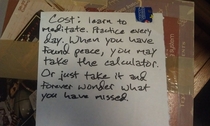 Cost: learn to
meditate. Practice every
day. When you have
found peace, you may
take the calculator.
Or just take it and
forever wonder what
you have missed.